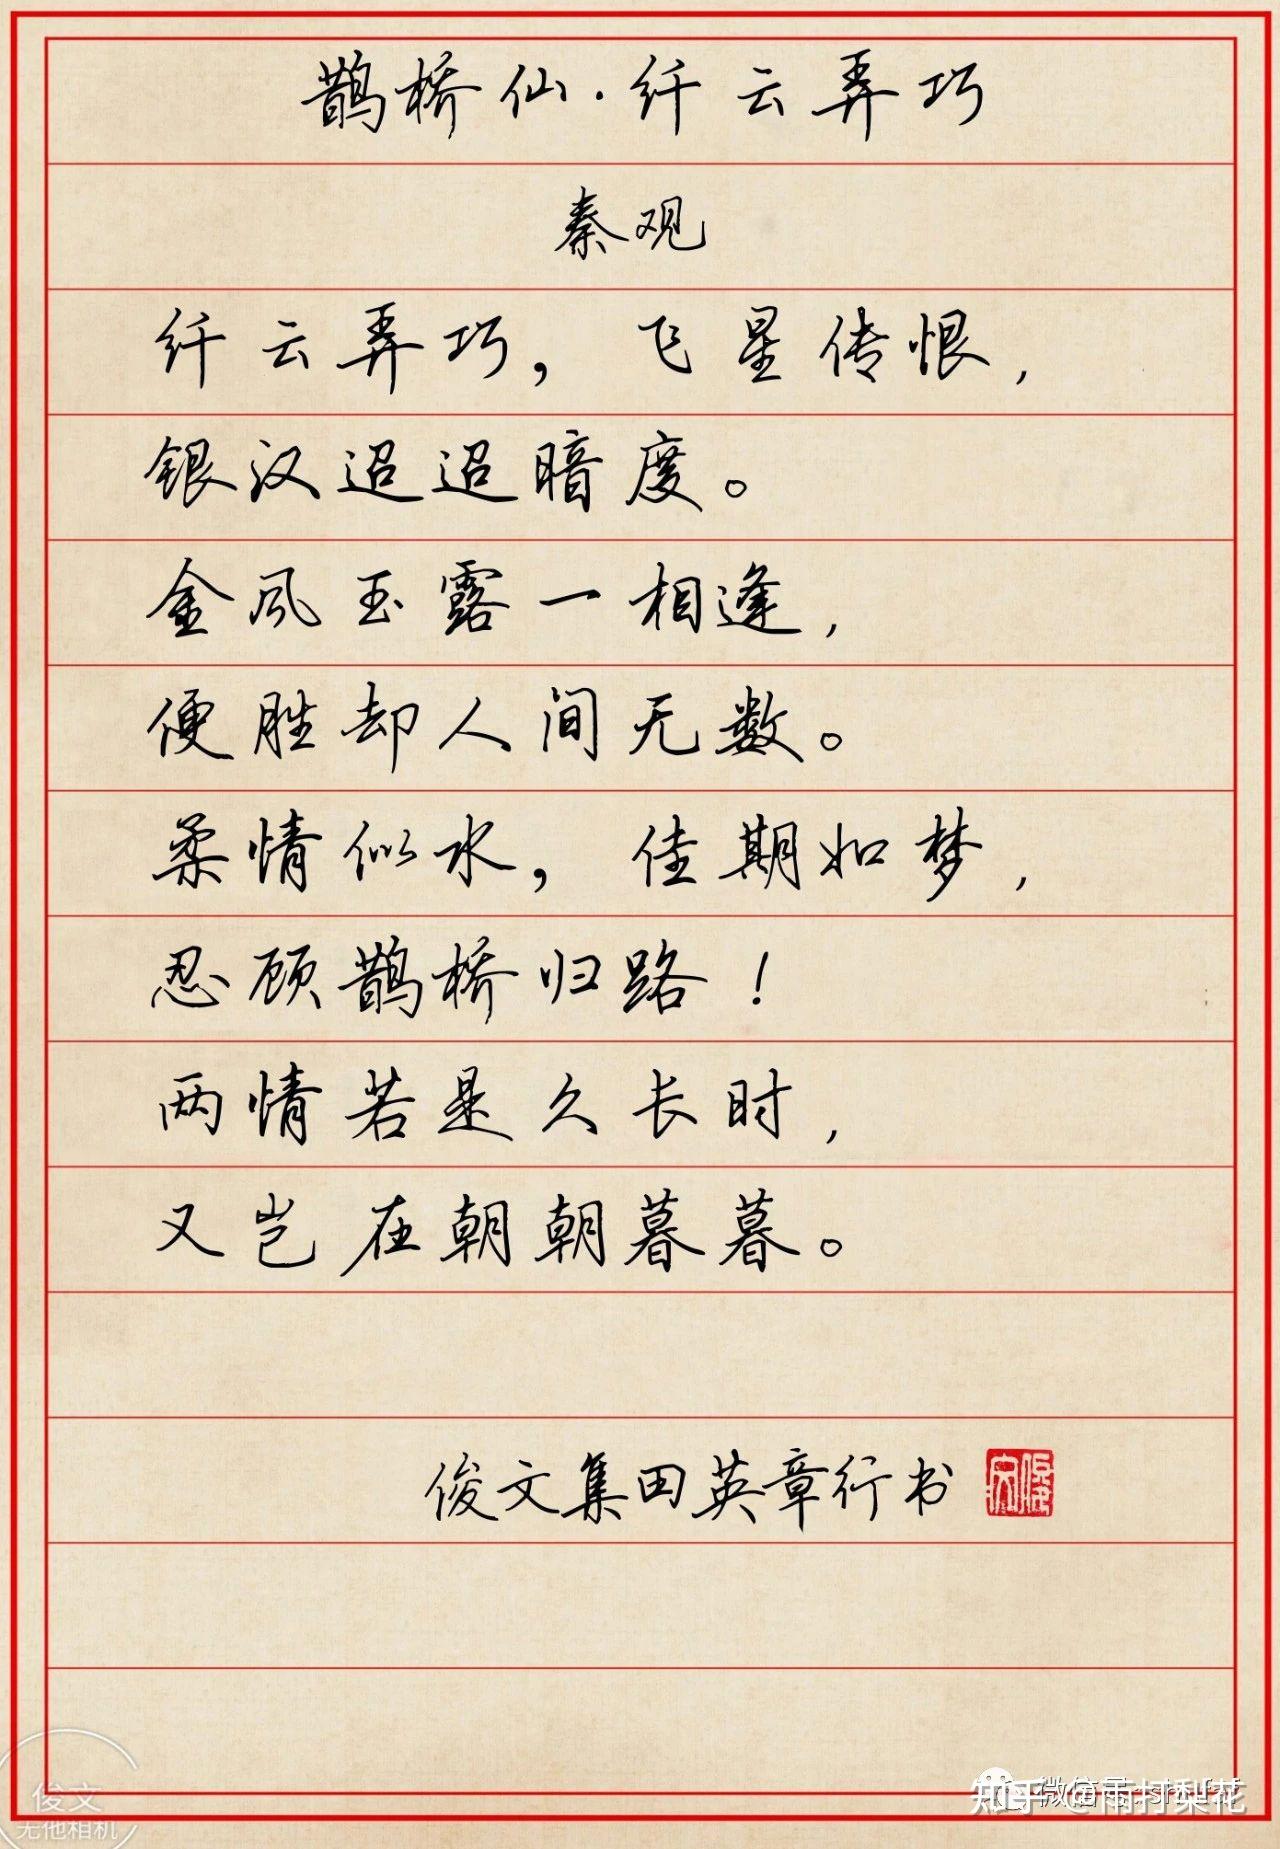 鹊桥仙·纤云弄巧
秦观
纤云弄巧，飞星传恨，
银汉迢迢暗度。
金风玉露一相逢，
便胜却人间无数。
柔情似水，佳期如梦，
忍顾鹊桥归路！
两情若是久长时，
又岂在朝朝暮暮。
俊文集田英章行书
俊文
俊文
无他相机
知乎 @雨打梨花